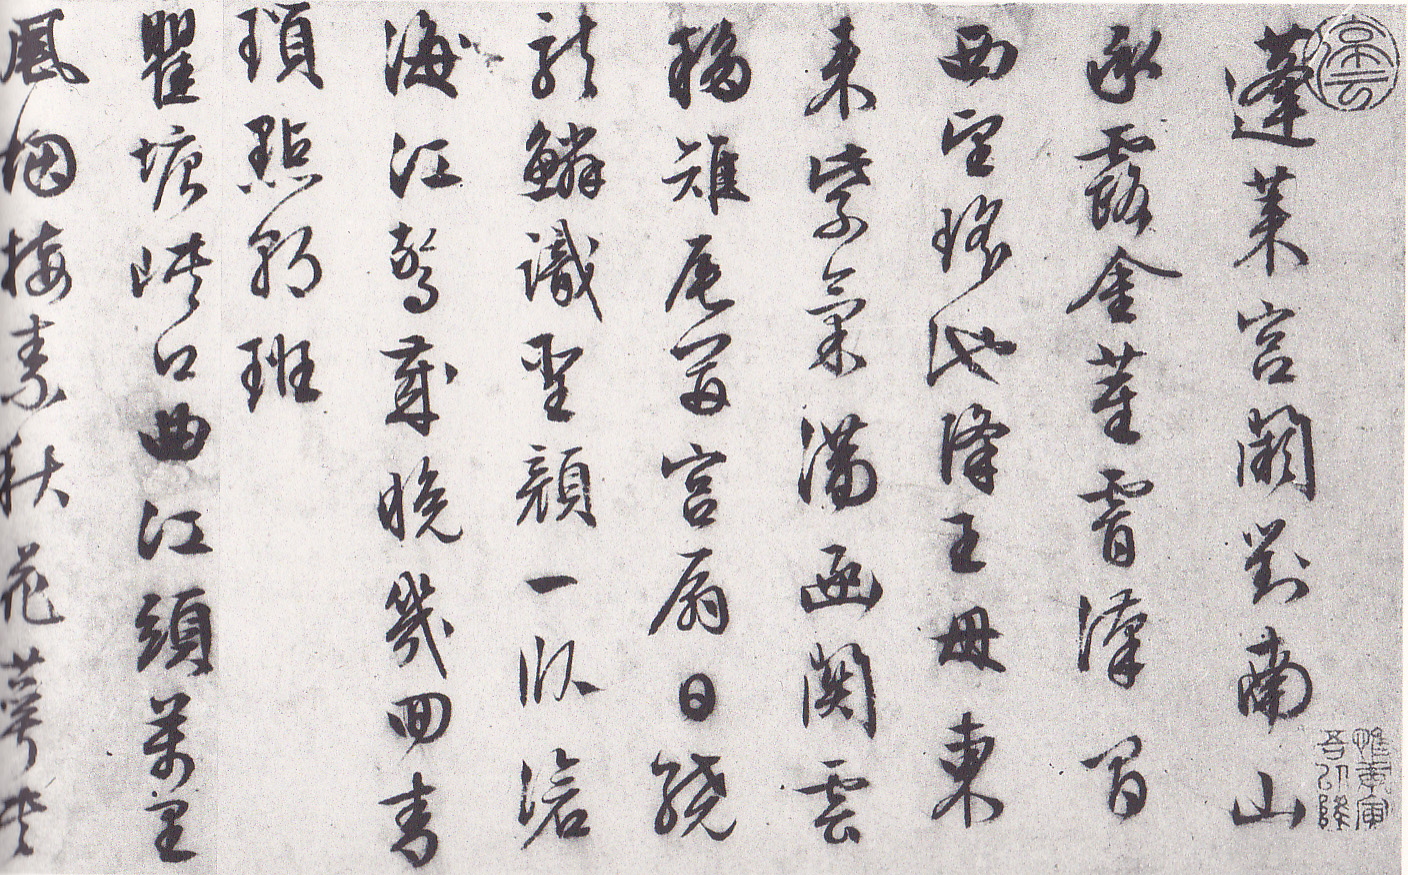 蓬莱宮闕對南山
承露金莖霄漢間
西望瑤池降王母東
来紫氣滿函關雲
移雉尾開宮扇日繞
龍鱗識聖顔一卧滄
海江驚歲晚幾回青
瑣點朝班
瞿塘峽口曲江頭萬里
風烟接素秋花萼夾
惟庚寅
吾以降